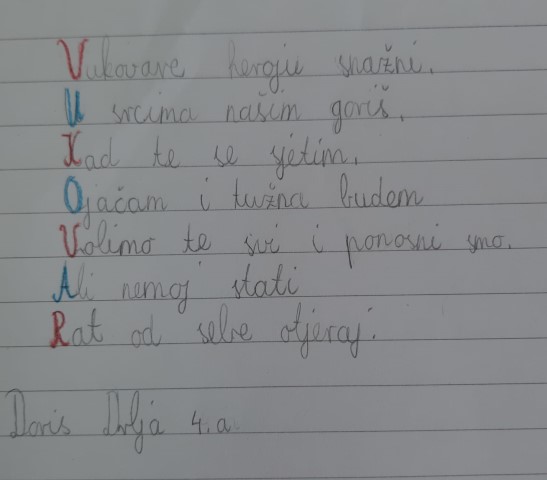 Vukovare heroju snažni,
U srcima našim goriš,
Kad te se sjetim,
Ojačam i tužna budem
Volimo te svi i ponosni smo.
Ali nemoj stati
Rat od sebe otjeraj.
Doris Drlja 4.a